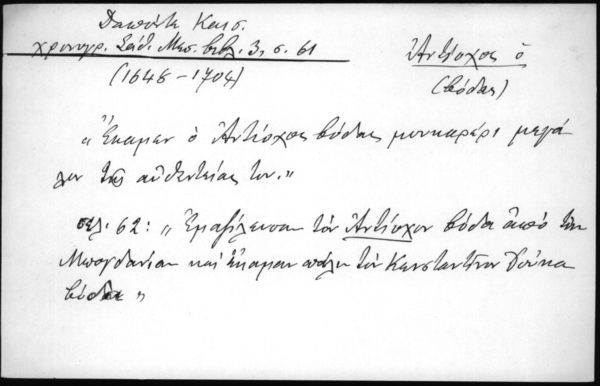 Δαπόντε Καισ.
χρονογρ. Σάθ. Μεσ. βιβ. 3, σ. 61
(1648-1704)
Ἀντίοχος ὁ
(βόδας)
"Ἔκαμεν ὁ Ἀντίοχος βόδας μουκαρέρι μεγά
λον τῆς αὐθεντείας του."
σελ. 62: "Ἐμαζίλευσαν τὸν Ἀντίοχον βόδα ἀπὸ τὴν
Μπογδανίαν καὶ ἔκαμαν πάλιν τὸν Κωνσταντῖνον Δούκα
βόδα"